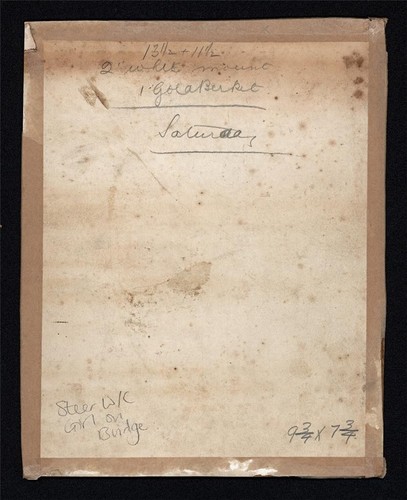 13½ + 11½
2" mount
1" Gold
Saturday
Steer W/C
Girl on
Bridge
9¾ X 7¾